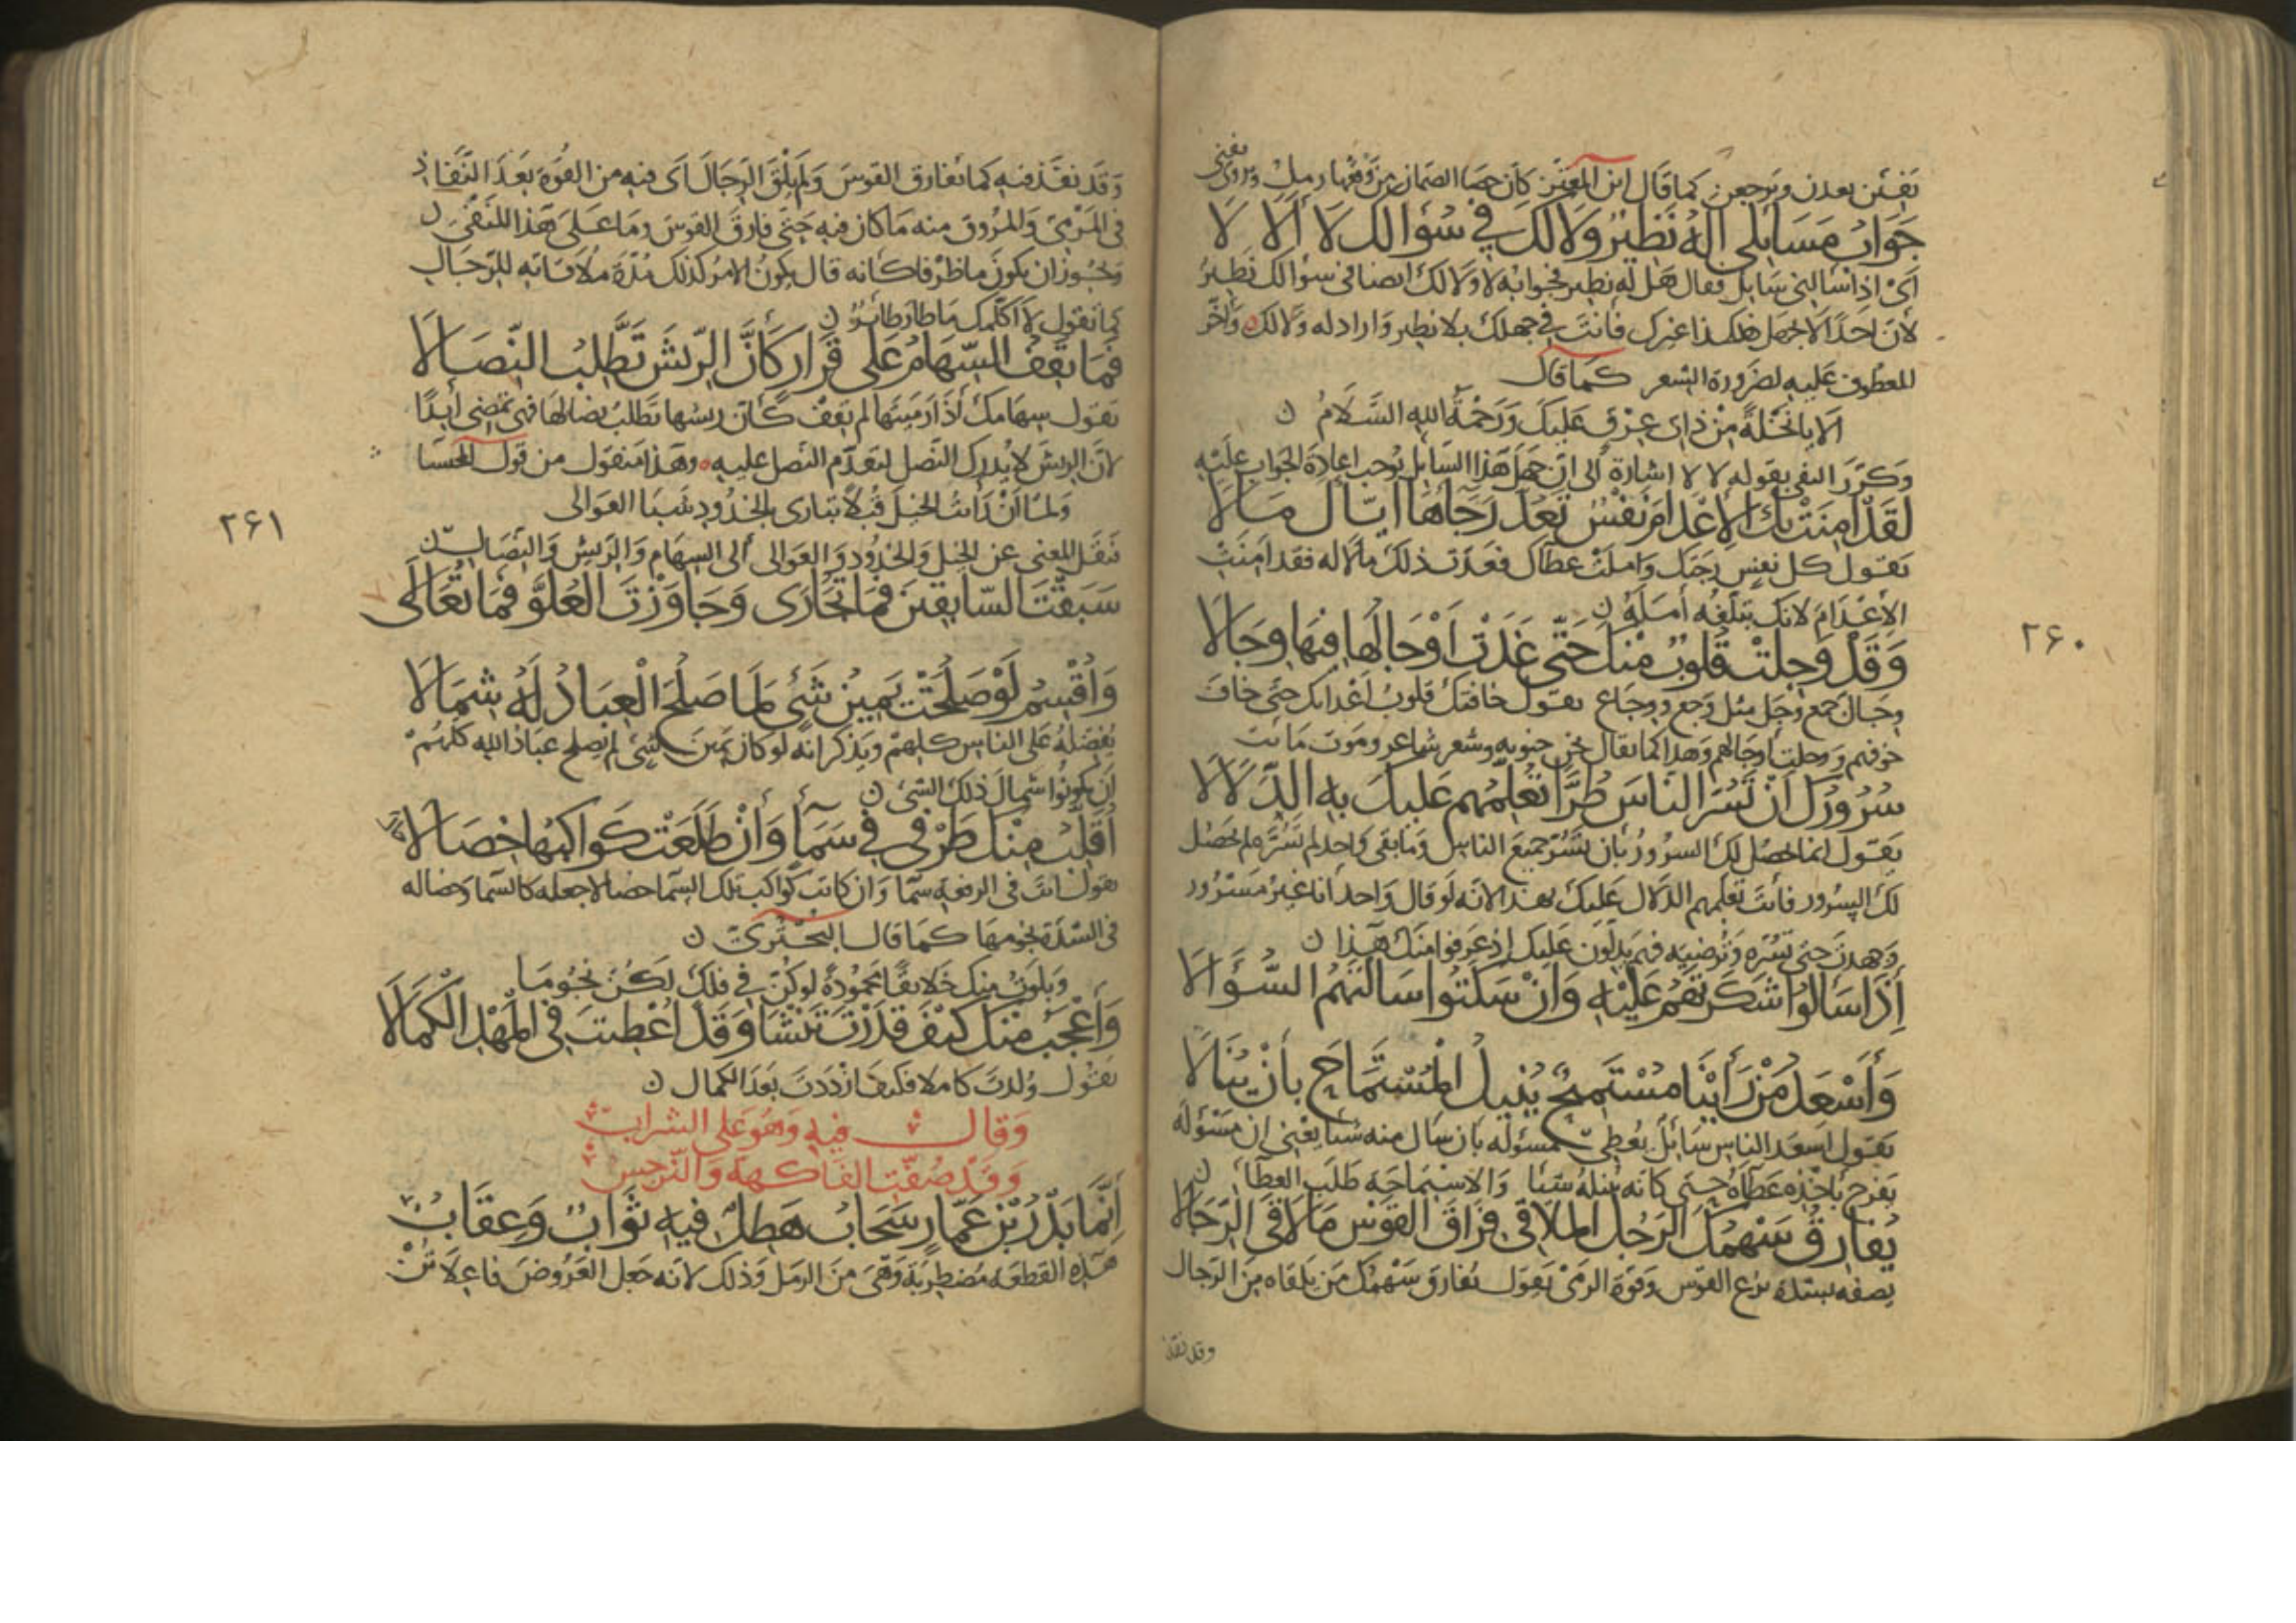 يفئن يعدن ويرجعن كما قال ابن المعتز كان حصا الصمان من وقعها رمل ويروى يفنى
جَوَابُ مَسَائِلِي أَلَهُ نَظِيرٌ وَلَا لَكَ فِي سُؤَالِكَ لَا أَلَا لَا
اى اذا سالنى سايل فقال هل له نظير فجوابه لا ولا لك ايضا فى سوالك نظير
لان احدا لا يجهل هكذا غيرك فانت فى جهلك بلا نظير واراد له ولا لك واخر
المعطوف عليه لضرورة الشعر كما قال
الا يا نخلة من ذات عرق عليك ورحمة الله السلام ن
وكرر النفى بقوله لا لا اشارة الى ان جهل هذا السايل يوجب اعادة الجواب عليه
لَقَدْ أَمِنَتْ بِكَ الْإِعْدَامَ نَفْسٌ تَعُدُّ رَجَاءَهَا إِيَّاكَ مَالَا
تقول كل نفس رجتك واملت عطاك فعدت ذلك مالا له فقد امنت
الاعدام لانك تبلغه أمله ن
وَقَدْ وَجِلَتْ قُلُوبٌ مِنْكَ حَتَّى غَدَتْ أَوْجَالُهَا فِيهَا وِجَالَا
وجال جمع وجل مثل وجع ووجاع يقول خافتك قلوب اعدائك حتى خاف
خوفهم ووجلت اوجالهم وهذا كما يقال جن جنونه وشعر شاعر وموت مائت
سُرُورُكَ أَنْ تَسُرَّ النَّاسَ طُرًّا تُعَلِّمُهُمْ عَلَيْكَ بِهِ الدَّلَالَا
يقول انما يحصل لك السرور بان تسر جميع الناس وما بقى واحد لم تسره لم يحصل
لك السرور فانت تعلمهم الدلال عليك بهذا لانه لو قال واحد انا غير مسرور
وجهدت حتى تسره وترضيه فهم يدلون عليك اذ عرفوا منك هذا ن
إِذَا سَأَلُوا شَكَرْتَهُمُ عَلَيْهِ وَإِنْ سَكَتُوا سَأَلْتَهُمُ السُّؤَالَا
وَأَسْعَدُ مَنْ رَأَيْنَا مُسْتَمِيحٌ يُنِيلُ الْمُسْتَمَاحَ بِأَنْ يُنَالَا
يقول اسعد الناس سائل يعطى مسئوله بان سال منه شيا يعنى ان مسئوله
يفرح باخذه عطاه حتى كانه ينيله شيئا والاستماحة طلب العطا ن
يُفَارِقُ سَهْمُكَ الرَّجُلَ الْمُلَاقِي فِرَاقَ الْقَوْسِ مَا لَاقَى الرِّجَالَا
يصفه بشدة نزع القوس وقوة الرمى يقول يفارق سهمك من يلقاه من الرجال
وقد نفذ
۲۶۰
وقد نفذ فيه كما يفارق القوس ولم يلق الرجال اى فيه من القوة بعد النفاذ
فى المرمى والمروق منه ما كان فيه حتى فارق القوس وما على هذا للنفى ن
ويجوز ان يكون ما ظرفا كانه قال يكون الامر كذلك مدة ملاقاته للرجال
كما تقول لا اكلمك ما طار طائر ن
فَمَا تَقِفُ السِّهَامُ عَلَى قَرَارٍ كَأَنَّ الرِّيشَ تَطَّلِبُ النِّصَالَا
تقول سهامك اذا رميتها لم تقف كان ريشها تطلب نصالها فهى تمضى ابدا
لان الريش لا يدرك النصل لتقدم النصل عليه وهذا منقول من قول الخنسا
ولما ان رأيت الخيل قبلا تبارى بالخدود شبا العوالى
فنقل المعنى عن الخيل والخدود والعوالى الى السهام والريش والنصال ن
سَبَقْتَ السَّابِقِينَ فَمَا تُجَارَى وَجَاوَزْتَ الْعُلُوَّ فَمَا تُعَالَى
وَأُقْسِمُ لَوْ صَلَحْتَ يَمِينَ شَيْءٍ لَمَا صَلَحَ الْعِبَادُ لَهُ شِمَالَا
يفضله على الناس كلهم ويذكر انه لو كان يمين شئ لم يصلح عباد الله كلهم
ان يكونوا شمال ذلك الشئ ن
أُقَلِّبُ مِنْكَ طَرْفِي فِي سَمَاءٍ وَإِنْ طَلَعَتْ كَوَاكِبُهَا خِصَالَا
يقول انت فى الرفعة سما وان كانت كواكب تلك السما خصالا جعله كالسما وخصاله
فى الشدة نجومها كما قال البحترى ن
وبلوت منك خلايقا محمودة لو كن فى فلك لكن نجوما
وَأَعْجَبُ مِنْكَ كَيْفَ قَدَرْتَ تَنْشَا وَقَدْ أُعْطِيتَ فِي الْمَهْدِ الْكَمَالَا
يقول ولدت كاملا فكيف ازددت بعد الكمال ن
وقال فيه وهو على الشراب
وقد صفت الفاكهة والنرجس
إِنَّمَا بَدْرُ بْنُ عَمَّارٍ سَحَابٌ هَطِلٌ فِيهِ ثَوَابٌ وَعِقَابُ
هذه القطعه مضطربة وهى من الرمل وذلك لانه جعل العروض فاعلاتن
۲۶۱